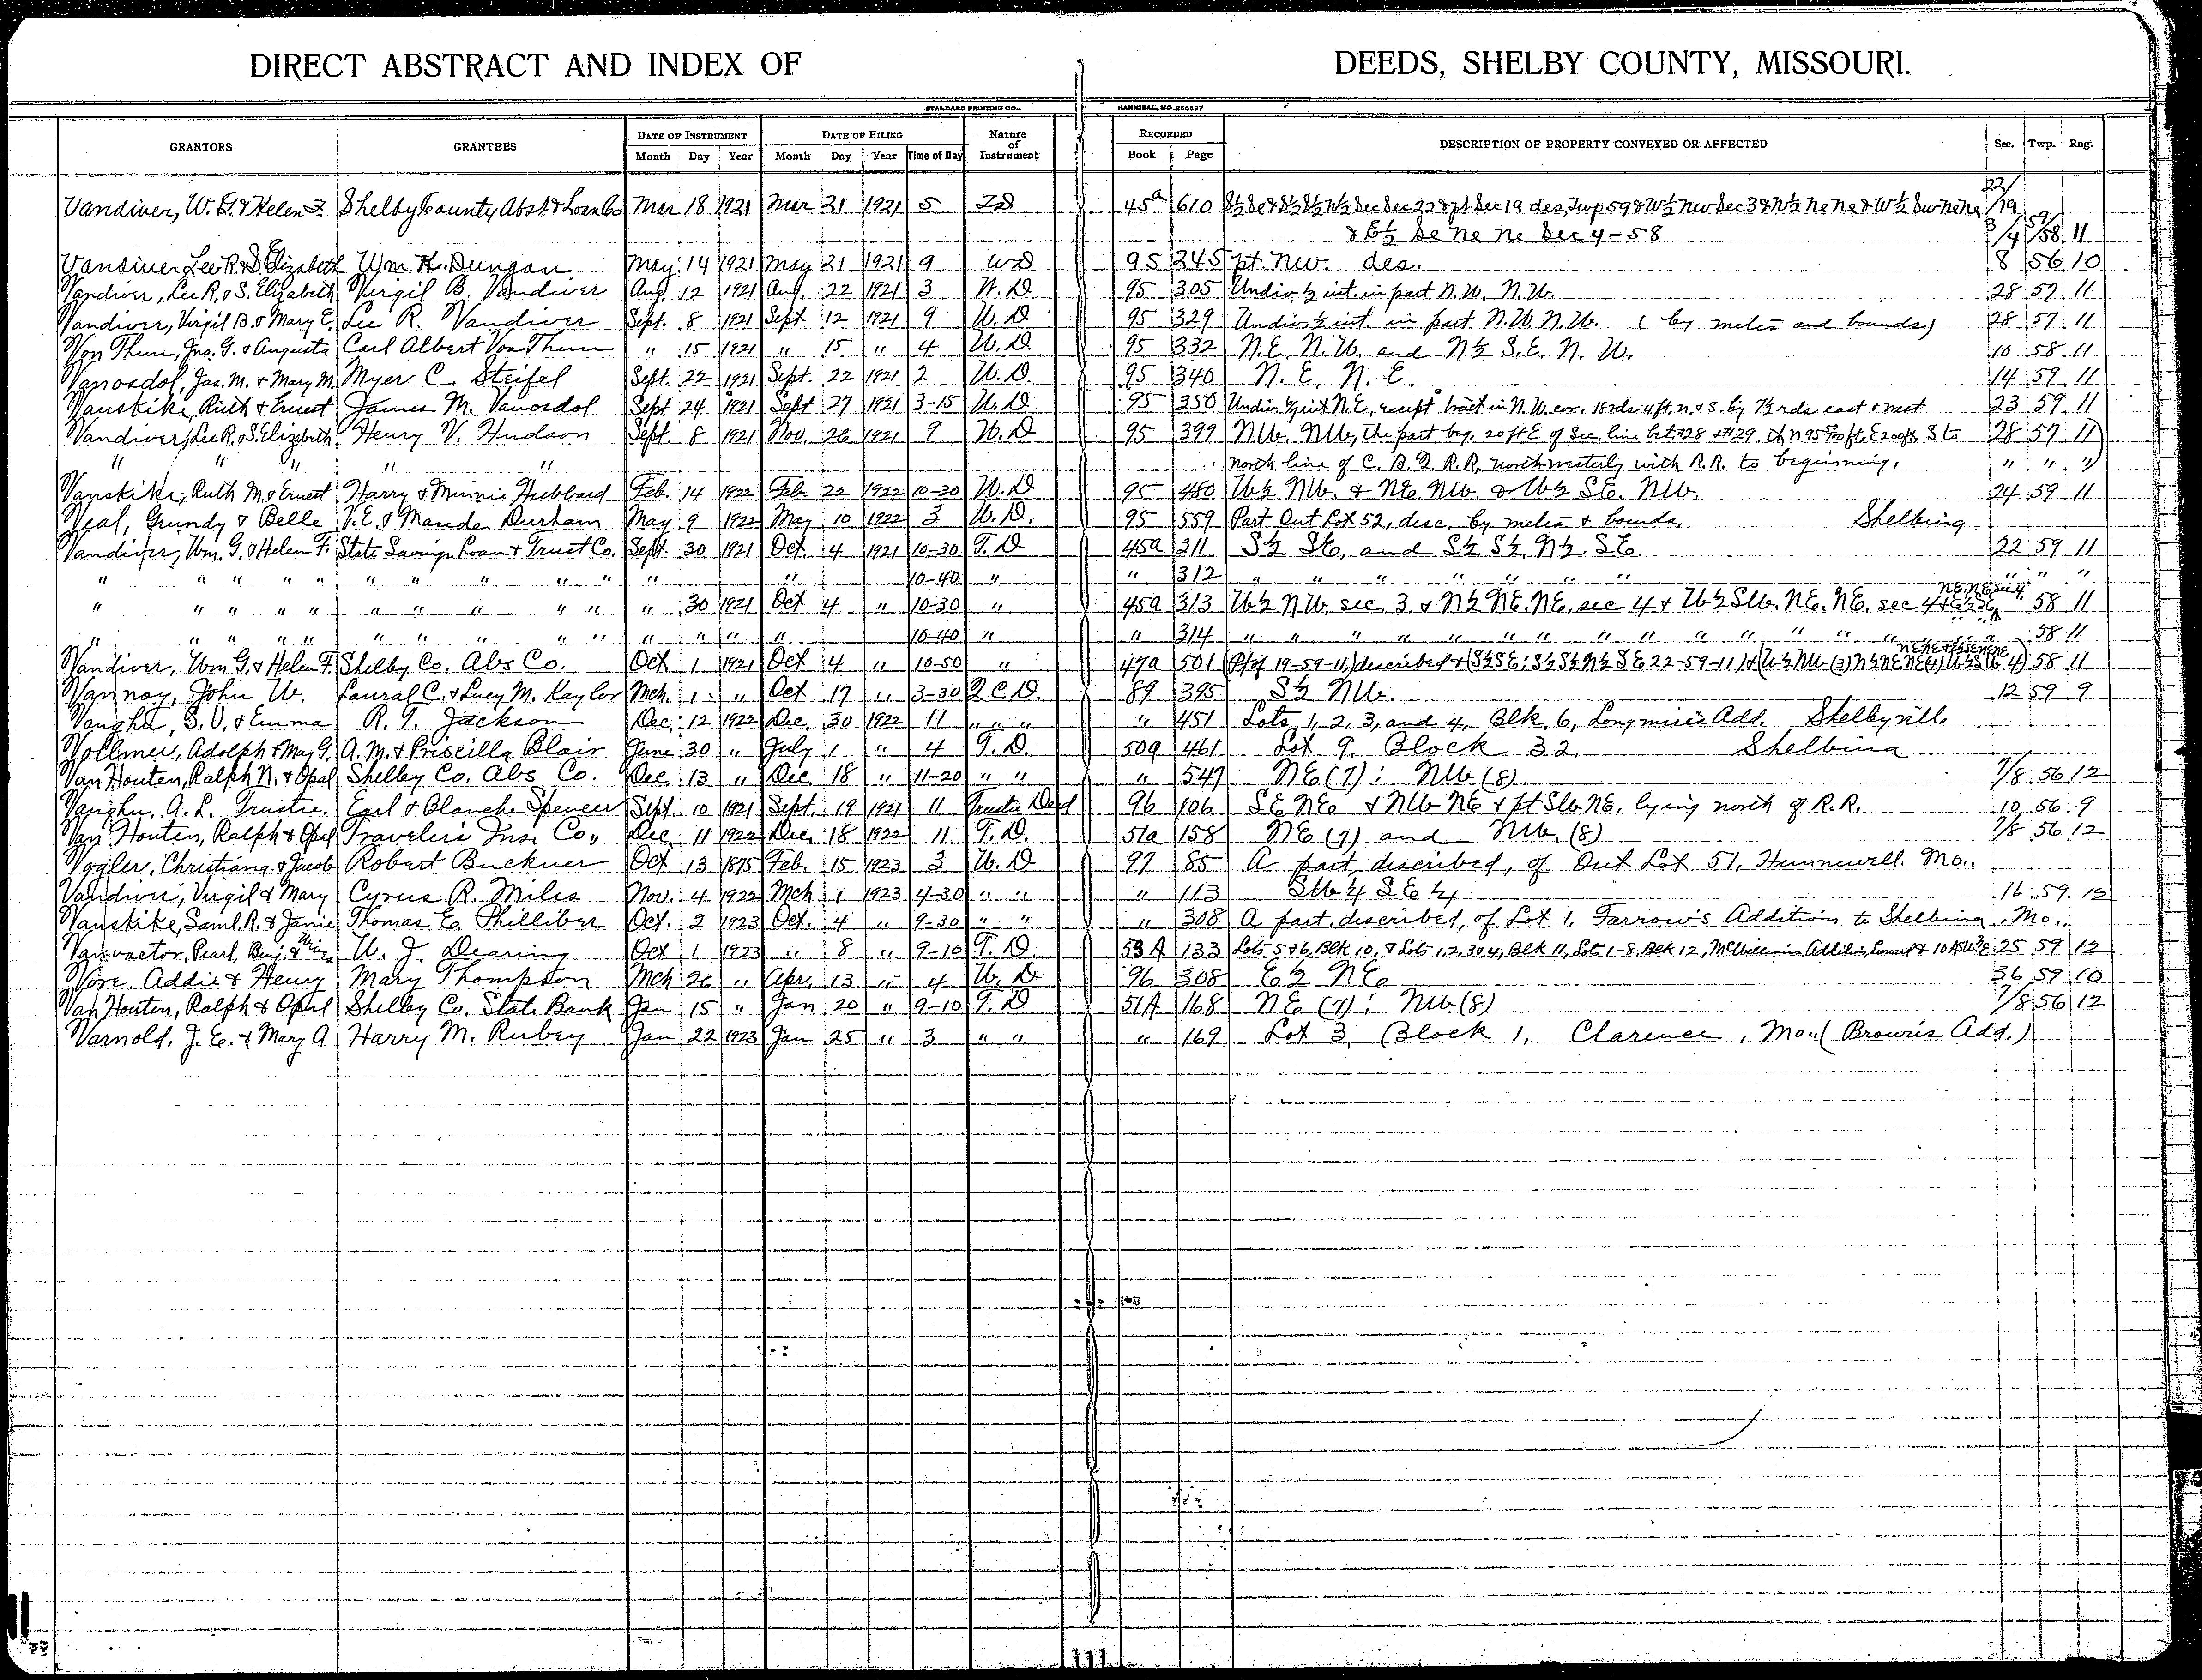 DIRECT ABSTRACT AND INDEX OF DEEDS, SHELBY COUNTY, MISSOURI.
STANDARD PRINTING CO., HANNIBAL, MO 256597
GRANTORS GRANTEES DATE OF INSTRUMENT DATE OF FILING Nature of Instrument RECORDED DESCRIPTION OF PROPERTY CONVEYED OR AFFECTED Sec. Twp. Rng.
Month Day Year Month Day Year Time of Day Book Page
Vandiver, W. G. & Helen F. Shelby County Abst. & Loan Co Mar 18 1921 Mar 21 1921 5 45a 610 S½ Se & S½ S½ N½ Sec Sec 22 & pt Sec 19 des, Twp 59 & W½ Nw Sec 3 & N½ Ne Ne & W½ Sw Ne Ne 22/19
& E½ Se Ne Ne Sec 4-58 3/4 59/58 11
Vandiver Lee R. & S. Elizabeth Wm. H. Dungan May 14 1921 May 21 1921 9 WD 95 245 pt. Nw. des. 8 56 10
Vandiver, Lee R. & S. Elizabeth Virgil B. Vandiver Aug 12 1921 Aug. 22 1921 3 W. D 95 305 Undiv ½ int. in part N.W. N.W. 28 57 11
Vandiver, Virgil B. & Mary E. Lee R. Vandiver Sept. 8 1921 Sept 12 1921 9 W. D 95 329 Undiv ½ int. in part N.W. N.W. (by metes and bounds) 28 57 11
Von Thun, Jno. G. & Augusta Carl Albert Von Thun " 15 1921 " 15 " 4 W. D. 95 332 N.E. N.W. and N½ S.E. N.W. 10 58 11
Vanosdol, Jas. M. & Mary M. Myer C. Steifel Sept. 22 1921 Sept. 22 1921 2 W. D. 95 340 N. E. N. E. 14 59 11
Vanskike, Ruth & Ernest James M. Vanosdol Sept 24 1921 Sept 27 1921 3-15 W. D. 95 350 Undiv int N.E. except tract in N.W. cor. 18 rds. 4 ft. n. & S. by 7½ rds east & west 23 59 11
Vandiver, Lee R. & S. Elizabeth Henry V. Hudson Sept. 8 1921 Nov. 26 1921 9 W. D 95 399 NW. NW, the part beg. 20 ft E of Sec. line bet. 28 & 29, th N ft. E 200 ft S to 28 57 11
" " " " " north line of C. B. Q. R. R. northwesterly with R.R. to beginning. " " "
Vanskike, Ruth M. & Ernest Harry & Minnie Hubbard Feb. 14 1922 Feb. 22 1922 10-30 W. D 95 480 W½ NW. & NE. NW. & W½ SE. NW. 24 59 11
Veal, Grundy & Belle V. E. & Mander Durham May 9 1922 May 10 1922 3 W. D. 95 559 Part Out Lot 52, desc. by metes & bounds, Shelbina
Vandiver, Wm. G. & Helen F. State Savings Loan & Trust Co. Sept 30 1921 Oct. 4 1921 10-30 T. D 45a 311 S½ SE, and S½ S½ N½ SE. 22 59 11
" " " " " " " " " " " " 10-40 " " 312 " " " " " " " " " "
" " " " " " " " " " " 30 1921 Oct 4 " 10-30 " 45a 313 W½ NW. sec. 3. & N½ NE. NE. sec 4 & W½ SW. NE. NE. sec 4 & E½ SE NE. NE sec 4 58 11
" " " " " " " " " " " " " " 10-40 " " 314 " " " " " " " " " " " " " " 58 11
Vandiver, Wm G. & Helen F. Shelby Co. Abs Co. Oct 1 1921 Oct 4 " 10-50 " 47a 501 Pt of 19-59-11, described & (S½ SE; S½ S½ N½ SE 22-59-11) & (W½ NW (3) N½ NE NE (4) 58 11
Vannoy, John W. Laural C. & Lucy M. Kaylor Mch. 1 " Oct 17 " 3-30 Q. C. D. 89 395 S½ NW. 12 59 9
Vaughn, S. V. & Emma R. T. Jackson Dec. 12 1922 Dec 30 1922 11 " " " " 451 Lots 1, 2, 3, and 4, Blk. 6, Longmires Add. Shelbyville
Vollmer, Adolph & May G. A. M. & Priscilla Blair June 30 " July 1 " 4 T. D. 50a 461 Lot 9, Block 32, Shelbina
Van Houten, Ralph N. & Opal Shelby Co. Abs Co. Dec 13 " Dec 18 " 11-20 " " " 547 NE (7): NW (8) 7/8 56 12
Vaughn, A. L. Trustee. Earl & Blanche Spencer Sept. 10 1921 Sept. 19 1921 11 Trustee Deed 96 106 SE NE & NW NE & pt SW NE. lying north of R.R. 10 56 9
Van Houten, Ralph & Opal Travelers Ins. Co., Dec. 11 1922 Dec. 18 1922 11 T. D. 51a 158 NE (7) and NW. (8) 7/8 56 12
Vogler, Christiana & Jacob Robert Buckner Oct 13 1895 Feb. 15 1923 3 W. D 97 85 A part, described, of Out Lot 51, Hunnewell. Mo.
Vandiver, Virgil & Mary Cyrus R. Miles Nov. 4 1922 Mch 1 1923 4-30 " " " 113 SW ¼ SE ¼ 16 59 12
Vanskike, Saml. R. & Janie Thomas E. Philliber Oct. 2 1923 Oct. 4 " 9-30 " " " 308 A part, described, of Lot 1, Farrow's Addition to Shelbina, Mo.
Vanvactor, Pearl, Benj. & W. J. Dearing Oct 1 1923 " 8 " 9-10 T. D. 53 A 133 Lots 5 & 6, Blk 10, & Lots 1, 2, 3 & 4, Blk 11, Lots 1-8, Blk 12, McWilliams Addition, 25 59 12
Vore. Addie & Henry Mary Thompson Mch 26 " Apr. 13 " 4 W. D 96 308 E½ NE 36 59 10
Van Houten, Ralph & Opal Shelby Co. State Bank Jan 15 " Jan 20 " 9-10 T. D 51A 168 NE (7): NW (8) 7/8 56 12
Varnold, J. E. & Mary A Harry M. Rubey Jan 22 1923 Jan 25 " 3 " " " 169 Lot 3, Block 1, Clarence, Mo. (Brown's Add.)